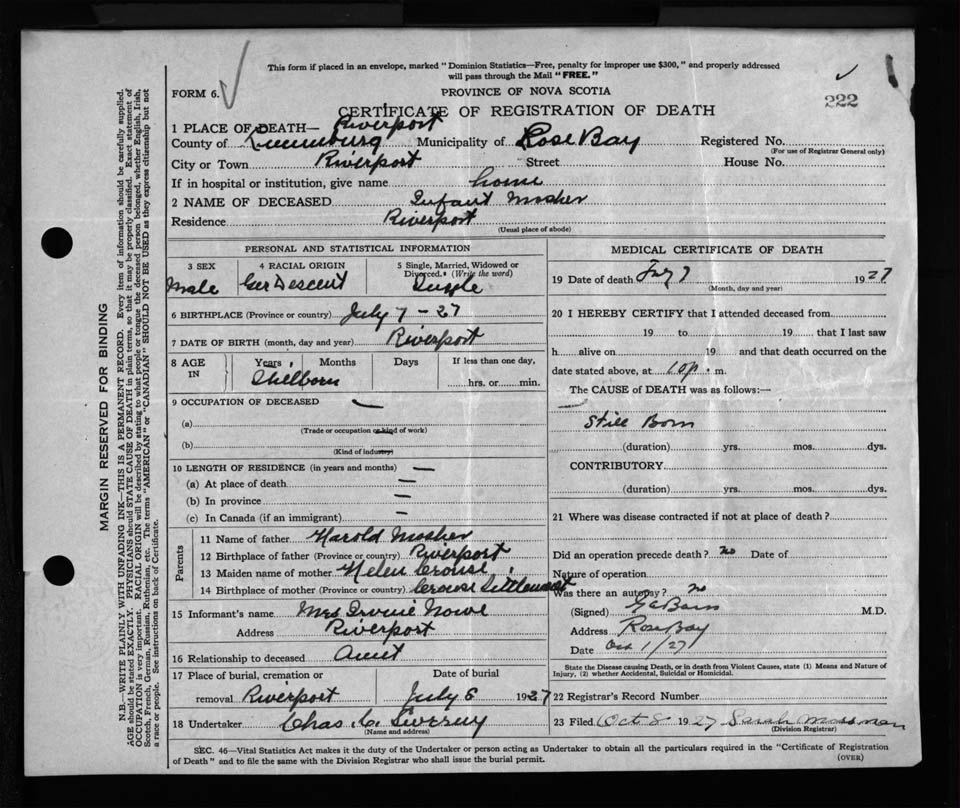 This form if placed in an envelope, marked "Dominion Statistics—Free, penalty for improper use $300," and properly addressed
will pass through the Mail "FREE."
FORM 6.
PROVINCE OF NOVA SCOTIA
222
CERTIFICATE OF REGISTRATION OF DEATH
1 PLACE OF DEATH— Riverport
County of Lunenburg Municipality of Rose Bay Registered No.
(For use of Registrar General only)
City or Town Riverport Street House No.
If in hospital or institution, give name home
2 NAME OF DECEASED Infant Mosher
Residence Riverport
(Usual place of abode)
PERSONAL AND STATISTICAL INFORMATION
3 SEX 4 RACIAL ORIGIN 5 Single, Married, Widowed or
Divorced. (Write the word)
Male Ger Descent Single
6 BIRTHPLACE (Province or country) July 7 - 27
7 DATE OF BIRTH (month, day and year) Riverport
8 AGE IN Years Months Days If less than one day,
hrs. or min.
9 OCCUPATION OF DECEASED —
(a)
(Trade or occupation or kind of work)
(b)
(Kind of industry)
10 LENGTH OF RESIDENCE (in years and months) —
(a) At place of death —
(b) In province —
(c) In Canada (if an immigrant) —
Parents
11 Name of father Harold Mosher
12 Birthplace of father (Province or country) Riverport
13 Maiden name of mother Helen Crouse
14 Birthplace of mother (Province or country) Crouse Settlement
15 Informant's name Mrs Irvine Nowe
Address Riverport
16 Relationship to deceased Aunt
17 Place of burial, cremation or Date of burial
removal Riverport July 8 1927
18 Undertaker Chas. C.
(Name and address)
MEDICAL CERTIFICATE OF DEATH
19 Date of death July 7 1927
(Month, day and year)
20 I HEREBY CERTIFY that I attended deceased from
19 to 19 that I last saw
h alive on 19 and that death occurred on the
date stated above, at 10 p. m.
The CAUSE of DEATH was as follows:—
Still Born
(duration) yrs. mos. dys.
CONTRIBUTORY
(duration) yrs. mos. dys.
21 Where was disease contracted if not at place of death?
Did an operation precede death? no Date of
Nature of operation
Was there an autopsy? no
(Signed) M.D.
Address Rose Bay
Date Oct 1/27
State the Disease causing Death, or in death from Violent Causes, state (1) Means and Nature of
Injury, (2) whether Accidental, Suicidal or Homicidal.
22 Registrar's Record Number
23 Filed Oct 8 1927 Sarah Mossman
(Division Registrar)
SEC. 46—Vital Statistics Act makes it the duty of the Undertaker or person acting as Undertaker to obtain all the particulars required in the "Certificate of Registration
of Death" and to file the same with the Division Registrar who shall issue the burial permit.
(OVER)
MARGIN RESERVED FOR BINDING
N.B.—WRITE PLAINLY WITH UNFADING INK—THIS IS A PERMANENT RECORD. Every item of information should be carefully supplied.
AGE should be stated EXACTLY. PHYSICIANS should STATE CAUSE OF DEATH in plain terms, so that it may be properly classified. Exact statement of
OCCUPATION is very important. RACIAL ORIGIN will be described by stating to what people or tongue the deceased person belonged, whether English, Irish,
Scotch, French, German, Russian, Ruthenian, etc. The terms "AMERICAN" or "CANADIAN" SHOULD NOT BE USED as they express citizenship but not
a race or people. See instructions on back of Certificate.